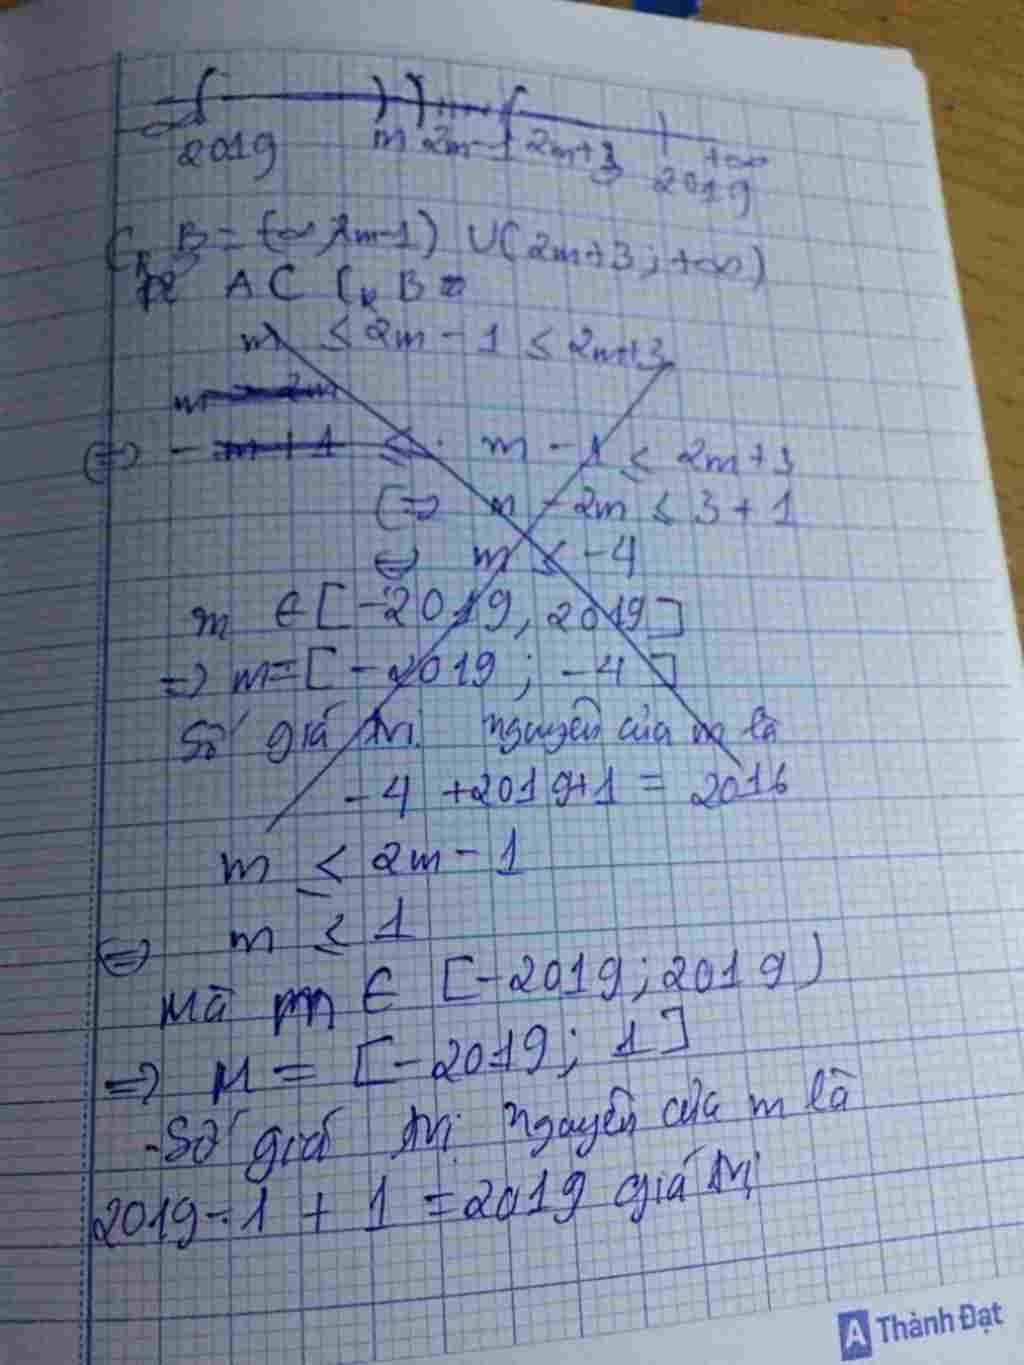 -∞ 2019 m 2m-1 2m+3 2019 +∞
C_R B = (-∞; 2m-1) ∪ (2m+3; +∞)
Để A ⊂ C_R B
m ≤ 2m - 1 ≤ 2m+3
⇔ - m + 1 ≤ m - 1 ≤ 2m+3
⇔ m - 2m ≤ 3 + 1
⇔ m ≤ -4
m ∈ [-2019, 2019]
=> m = [-2019; -4]
Số giá trị nguyên của m là
-4 +2019+1 = 2016
m ≤ 2m - 1
⇔ m ≤ 1
Mà m ∈ [-2019; 2019)
=> M = [-2019; 1]
-Số giá trị nguyên của m là
2019-1 + 1 = 2019 giá trị
A Thành Đạt